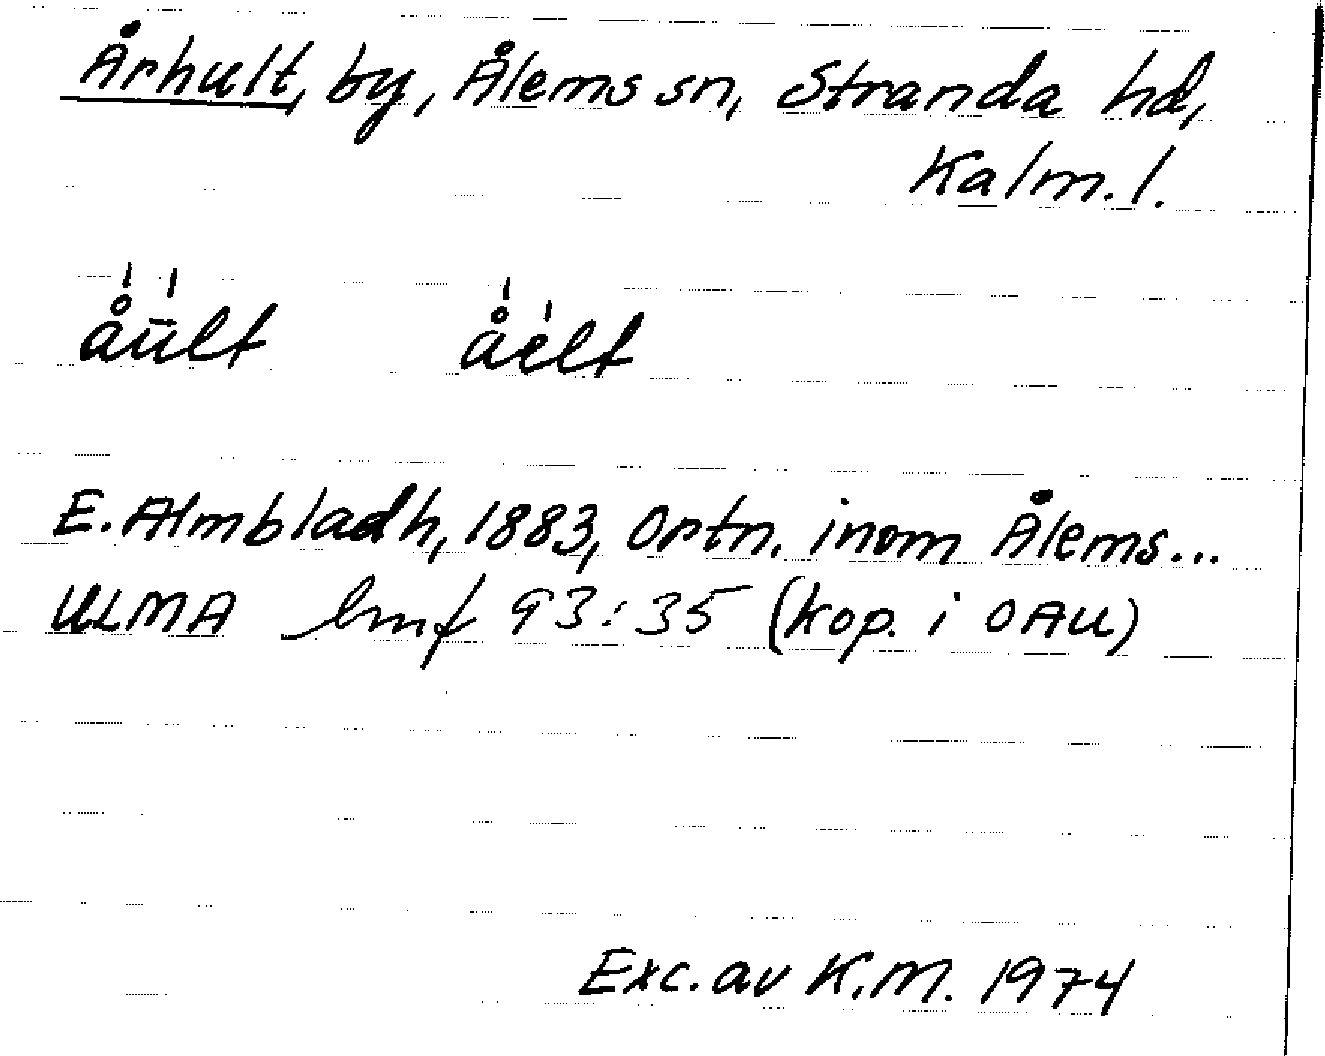 Århult, by, Ålems sn, Stranda hd,
Kalm. l.
åu̅lt åėlt
E. Almbladh, 1883, Ortn. inom Ålems...
ULMA hmf 93:35 (kop. i OAU)
Exc. av K.M. 1974